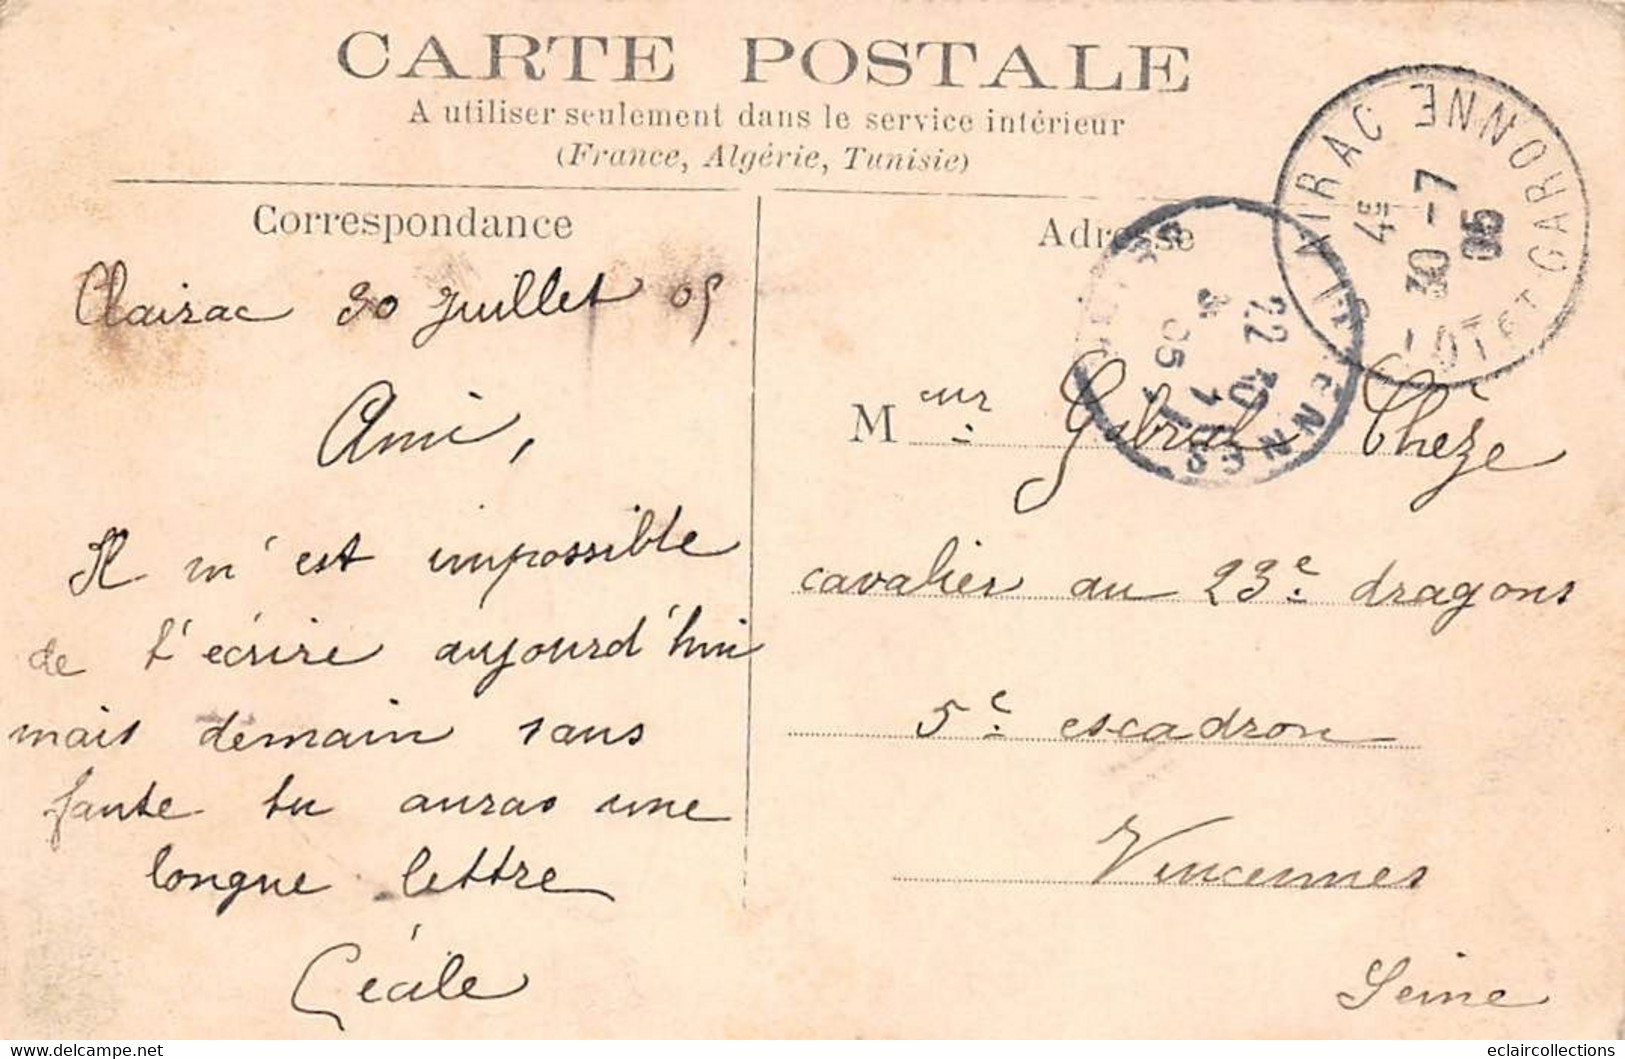 CARTE POSTALE
A utiliser seulement dans le service intérieur
(France, Algérie, Tunisie)
Correspondance
Clairac 30 Juillet 05
Ami,
Il m'est impossible
de t'écrire aujourd'hui
mais demain sans
faute tu auras une
longue lettre
Cécile
Adresse
Meur Gabriel Thèze
cavalier au 23e dragons
5e escadron
Vincennes
Seine
CLAIRAC
LOT ET GARONNE
4E
30-7
05
eclaircollections